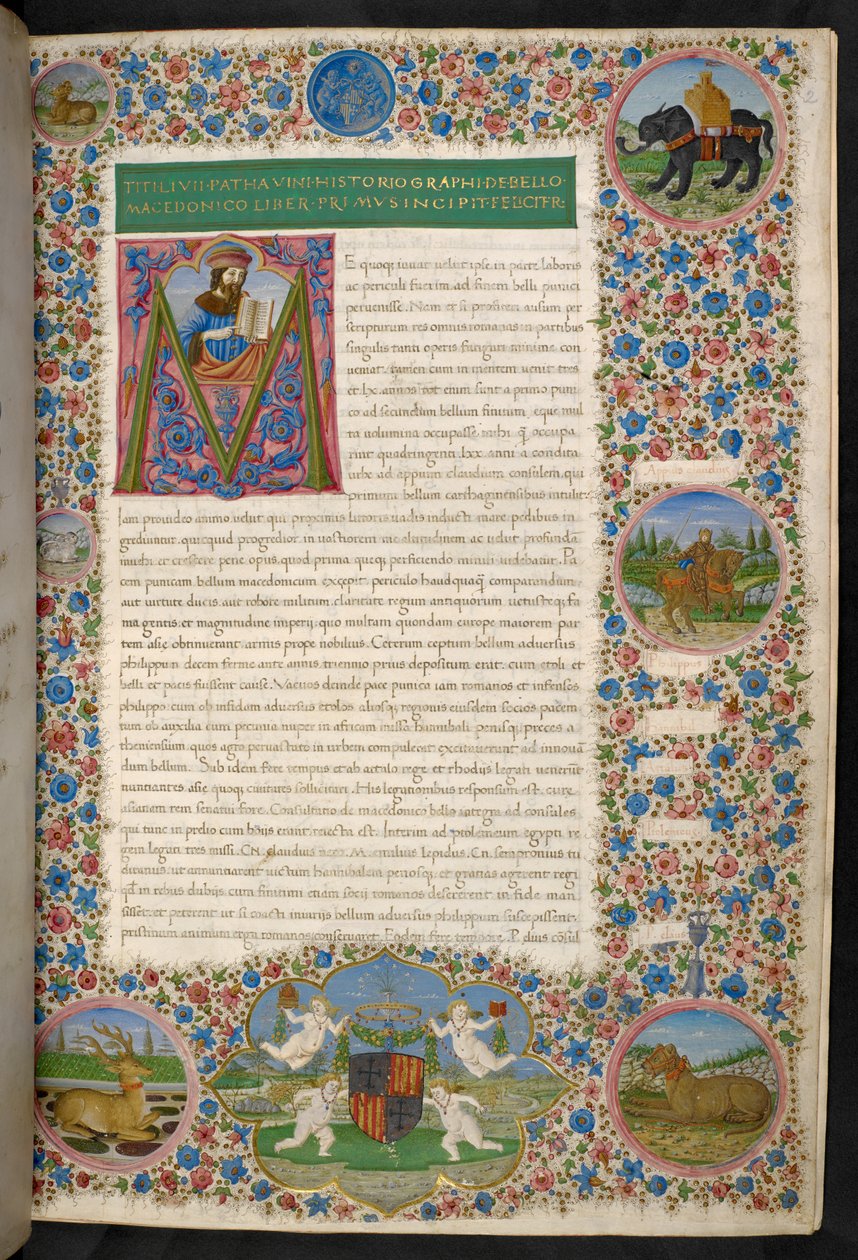 TITI·LIVII·PATHAVINI·HISTORIOGRAPHI·DE·BELLO·
MACEDONICO·LIBER·PRIMVS·INCIPIT·FELICITER:
M
E quoq; iuvat velut ipse in parte laboris
ac periculi fuerim ad finem belli punici
pervenisse. Nam et si profiteri ausum per
scripturum res omnis romanas in partibus
singulis tanti operis fatigari minime con
veniat. tamen cum in mentem venit tres
et lx. annos tot enim sunt a primo puni
co ad secundum bellum finitum. eque mul
ta volumina occupasse mihi q̄ occupa
rint quadringenti lxx anni a condita
urbe ad appium claudium consulem. qui
primum bellum carthaginensibus intulit:
Iam provideo animo velut qui proximis litoris vadis inducti mare pedibus in
grediuntur. quicquid progredior in vastiorem me altitudinem ac velut profundū
invehi et crescere pene opus. quod prima queq; perficiendo minui videbatur. Pa
cem punicam bellum macedonicum excepit. periculo haudquaq̄ comparandum
aut virtute ducis. aut robore militum. claritate regum antiquorum vetusteq; fa
ma gentis. et magnitudine imperij. quo multam quondam europe maiorem par
tem asię obtinuerant armis prope nobilius. Ceterum ceptum bellum adversus
philippum decem ferme ante annis triennio prius depositum erat. cum etoli et
belli et pacis fuissent cause. Vacuos deinde pace punica iam romanos et infensos
philippo. cum ob infidam adversus etolos aliosq; regionis eiusdem socios pacem
tum ob auxilia cum pecunia nuper in africam missa hannibali penisq; preces a
theniensium. quos agro pervastato in urbem compulerat excitaverunt ad innovan
dum bellum. Sub idem fere tempus et ab actalo rege et rhodijs legati venerūt
nuntiantes. asię quoq; civitates sollicitari. His legationibus responsum est. cure
asianam rem senatui fore. Consultatio de macedonico bello integra ad consules
qui tunc in prelio cum boijs erant reiecta est. Interim ad ptolemeum egypti re
gem legati tres missi. CN. claudius nero. M. emilius lepidus. Cn. sempronius tu
ditanus. ut annuntiarent victum Hannibalem penosq; et gratias agerent regi
qđ in rebus dubijs. cum finitimi etiam socij romanos desererent in fide man
sisset. et peterent ut si coacti iniurijs bellum adversus philippum suscepissent.
pristinum animum erga romanos conservaret. Eodem fere tempore. P. elius cōsul
Appius claudius
Philippus
Ptolemeus
P. elius
2